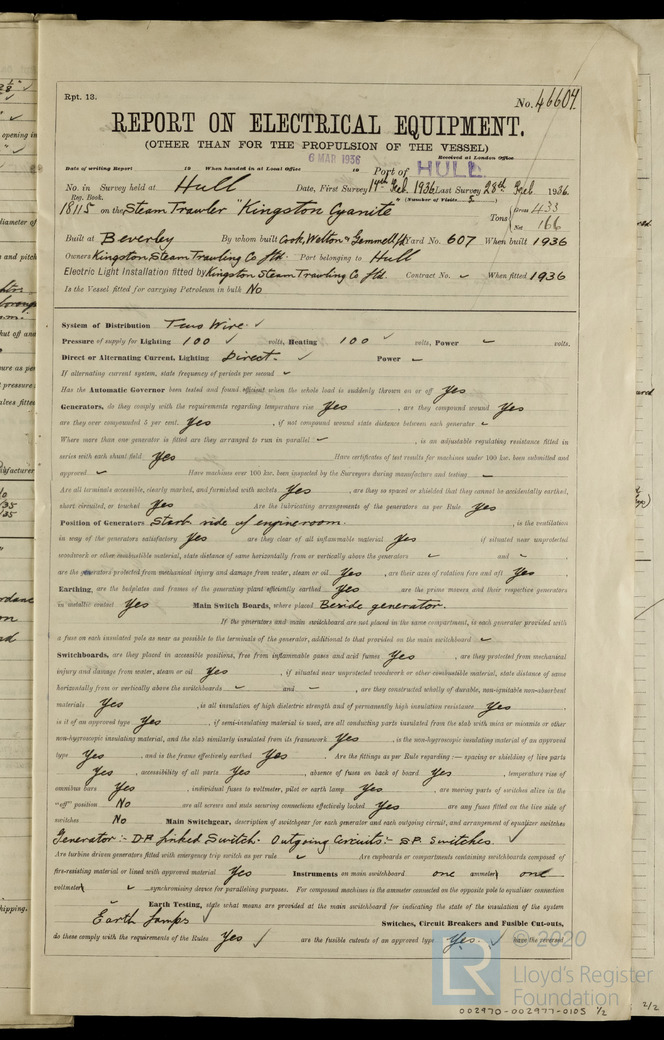 Rpt. 13.
No. 46604.
REPORT ON ELECTRICAL EQUIPMENT.
(OTHER THAN FOR THE PROPULSION OF THE VESSEL)
6 MAR 1936
Received at London Office
Date of writing Report 19 When handed in at Local Office 19 Port of HULL
No. in Survey held at Hull Date, First Survey 14th Feb. 1936 Last Survey 28th Feb 1936
Reg. Book. (Number of Visits 5)
18115 on the Steam Trawler "Kingston Cyanite" Tons Gross 433 Net 166
Built at Beverley By whom built Cook, Welton & Gemmell Ltd Yard No. 607 When built 1936
Owners Kingston Steam Trawling Co Ltd. Port belonging to Hull
Electric Light Installation fitted by Kingston Steam Trawling Co Ltd. Contract No. - When fitted 1936
Is the Vessel fitted for carrying Petroleum in bulk No
System of Distribution Two Wire ✓
Pressure of supply for Lighting 100 ✓ volts, Heating 100 ✓ volts, Power - volts.
Direct or Alternating Current, Lighting Direct. ✓ Power -
If alternating current system, state frequency of periods per second -
Has the Automatic Governor been tested and found efficient when the whole load is suddenly thrown on or off Yes
Generators, do they comply with the requirements regarding temperature rise Yes, are they compound wound Yes
are they over compounded 5 per cent. Yes, if not compound wound state distance between each generator -
Where more than one generator is fitted are they arranged to run in parallel -, is an adjustable regulating resistance fitted in
series with each shunt field Yes Have certificates of test results for machines under 100 kw. been submitted and
approved - Have machines over 100 kw. been inspected by the Surveyors during manufacture and testing -
Are all terminals accessible, clearly marked, and furnished with sockets Yes, are they so spaced or shielded that they cannot be accidentally earthed,
short circuited, or touched Yes Are the lubricating arrangements of the generators as per Rule Yes
Position of Generators Starb. side of engineroom., is the ventilation
in way of the generators satisfactory Yes are they clear of all inflammable material Yes if situated near unprotected
woodwork or other combustible material, state distance of same horizontally from or vertically above the generators - and -
are the generators protected from mechanical injury and damage from water, steam or oil Yes, are their axes of rotation fore and aft Yes
Earthing, are the bedplates and frames of the generating plant efficiently earthed Yes are the prime movers and their respective generators
in metallic contact Yes Main Switch Boards, where placed Beside generator.
If the generators and main switchboard are not placed in the same compartment, is each generator provided with
a fuse on each insulated pole as near as possible to the terminals of the generator, additional to that provided on the main switchboard -
Switchboards, are they placed in accessible positions, free from inflammable gases and acid fumes Yes, are they protected from mechanical
injury and damage from water, steam or oil Yes, if situated near unprotected woodwork or other combustible material, state distance of same
horizontally from or vertically above the switchboards - and -, are they constructed wholly of durable, non-ignitable non-absorbent
materials Yes, is all insulation of high dielectric strength and of permanently high insulation resistance Yes
is it of an approved type Yes, if semi-insulating material is used, are all conducting parts insulated from the slab with mica or micanite or other
non-hygroscopic insulating material, and the slab similarly insulated from its framework Yes, is the non-hygroscopic insulating material of an approved
type Yes, and is the frame effectively earthed Yes Are the fittings as per Rule regarding :— spacing or shielding of live parts
Yes, accessibility of all parts Yes, absence of fuses on back of board Yes, temperature rise of
omnibus bars Yes, individual fuses to voltmeter, pilot or earth lamp Yes, are moving parts of switches alive in the
"off" position No are all screws and nuts securing connections effectively locked Yes, are any fuses fitted on the live side of
switches No Main Switchgear, description of switchgear for each generator and each outgoing circuit, and arrangement of equalizer switches
Generator :- D.P. Linked Switch. Outgoing Circuits :- S.P. Switches. ✓
Are turbine driven generators fitted with emergency trip switch as per rule - Are cupboards or compartments containing switchboards composed of
fire-resisting material or lined with approved material Yes Instruments on main switchboard one ammeter one
voltmeter - synchronising device for paralleling purposes. For compound machines is the ammeter connected on the opposite pole to equaliser connection
- Earth Testing, state what means are provided at the main switchboard for indicating the state of the insulation of the system
Earth Lamps ✓ Switches, Circuit Breakers and Fusible Cut-outs,
do these comply with the requirements of the Rules Yes ✓ are the fusible cutouts of an approved type Yes. ✓ have the reversed
© 2020
LR Lloyd's Register
Foundation
002970-002977-0105 1/2